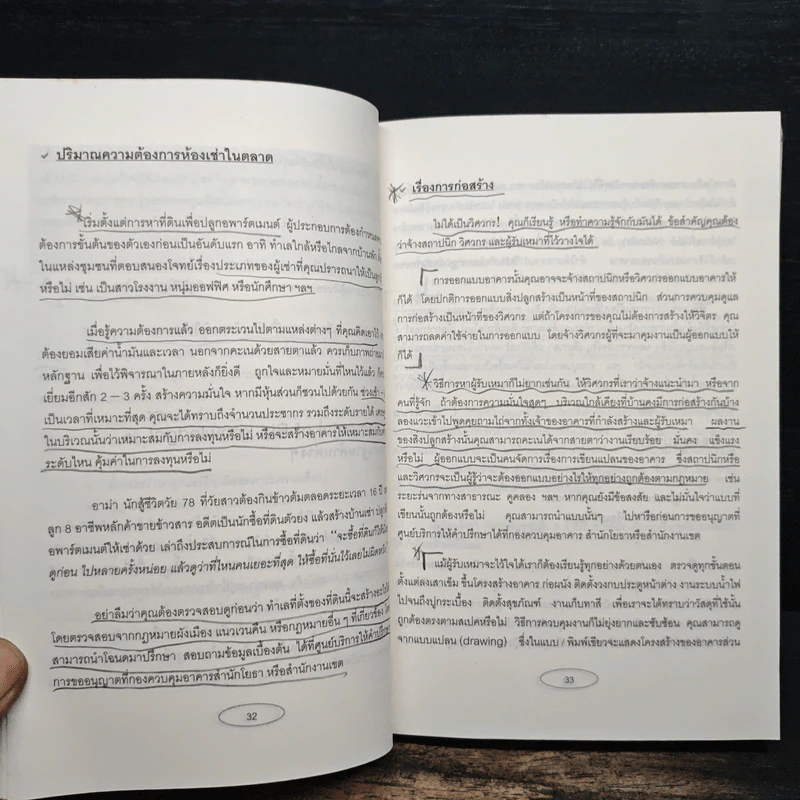 ปริมาณความต้องการห้องเช่าในตลาด
เริ่มตั้งแต่การหาที่ดินเพื่อปลูกอพาร์ตเมนต์ ผู้ประกอบการต้องกำหนด
ต้องการขั้นต้นของตัวเองก่อนเป็นอันดับแรก อาทิ ทำเลใกล้หรือไกลจากบ้านพัก
ในแหล่งชุมชนที่ตอบสนองโจทย์เรื่องประเภทของผู้เช่าที่คุณปรารถนาให้เป็น
หรือไม่ เช่น เป็นสาวโรงงาน หนุ่มออฟฟิศ หรือนักศึกษา ฯลฯ
เมื่อรู้ความต้องการแล้ว ออกตระเวนไปตามแหล่งต่างๆ ที่คุณคิดเอาไว้
ต้องยอมเสียค่าน้ำมันและเวลา นอกจากคะเนด้วยสายตาแล้ว ควรเก็บภาพถ่าย
หลักฐาน เพื่อไว้พิจารณาในภายหลังก็ยิ่งดี ถูกใจและหมายมั่นที่ไหนไว้แล้ว
เยี่ยมอีกสัก 2 – 3 ครั้ง สร้างความมั่นใจ หากมีหุ้นส่วนก็ชวนไปด้วยกัน ช่วงเช้า
เป็นเวลาที่เหมาะที่สุด คุณจะได้ทราบถึงจำนวนประชากร รวมถึงระดับรายได้
ในบริเวณนั้นว่าเหมาะสมกับการลงทุนหรือไม่ หรือจะสร้างอาคารให้เหมาะสมกับ
ระดับไหน คุ้มค่าในการลงทุนหรือไม่
อาม่า นักสู้ชีวิตวัย 78 ที่วัยสาวต้องกินข้าวต้มตลอดระยะเวลา 16 ปี
ลูก 8 อาชีพหลักค้าขายข้าวสาร อดีตเป็นนักซื้อที่ดินตัวยง แล้วสร้างบ้านเช่า
อพาร์ตเมนต์ให้เช่าด้วย เล่าถึงประสบการณ์ในการซื้อที่ดินว่า "จะซื้อที่ดินก็ให้
ดูก่อน ไปหลายครั้งหน่อย แล้วดูว่าที่ไหนคนเยอะที่สุด ให้ซื้อที่นั่นไว้เลยไม่ผิดหวัง"
อย่าลืมว่าคุณต้องตรวจสอบดูก่อนว่า ทำเลที่ตั้งของที่ดินนี้จะสร้างอะไร
โดยตรวจสอบจากกฎหมายผังเมือง แนวเวนคืน หรือกฎหมายอื่น ๆ ที่เกี่ยวข้อง
สามารถนำโฉนดมาปรึกษา สอบถามข้อมูลเบื้องต้น ได้ที่ศูนย์บริการให้คำปรึกษา
การขออนุญาตที่กองควบคุมอาคารสำนักโยธา หรือสำนักงานเขต
32
เรื่องการก่อสร้าง
ไม่ได้เป็นวิศวกร! คุณก็เรียนรู้ หรือทำความรู้จักกับมันได้ ข้อสำคัญคุณต้อง
ว่าจ้างสถาปนิก วิศวกร และผู้รับเหมาที่ไว้วางใจได้
การออกแบบอาคารนั้นคุณอาจจะจ้างสถาปนิกหรือวิศวกรออกแบบอาคารให้
ก็ได้ โดยปกติการออกแบบสิ่งปลูกสร้างเป็นหน้าที่ของสถาปนิก ส่วนการควบคุมดูแล
การก่อสร้างเป็นหน้าที่ของวิศวกร แต่ถ้าโครงการของคุณไม่ต้องการสร้างให้วิจิตร คุณ
สามารถลดค่าใช้จ่ายในการออกแบบ โดยจ้างวิศวกรผู้ที่จะมาคุมงานเป็นผู้ออกแบบให้
ก็ได้
วิธีการหาผู้รับเหมาก็ไม่ยากเช่นกัน ให้วิศวกรที่เราว่าจ้างแนะนำมา หรือจาก
คนที่รู้จัก ถ้าต้องการความมั่นใจสุดๆ บริเวณใกล้เคียงที่บ้านคงมีการก่อสร้างกันบ้าง
ลองแวะเข้าไปพูดคุยถามไถ่จากทั้งเจ้าของอาคารที่กำลังสร้างและผู้รับเหมา ผลงาน
ของสิ่งปลูกสร้างนั้นคุณสามารถคะเนได้จากสายตาว่างานเรียบร้อย มั่นคง แข็งแรง
หรือไม่ ผู้ออกแบบจะเป็นคนจัดการเรื่องการเขียนแปลนของอาคาร ซึ่งสถาปนิกหรือ
และวิศวกรจะเป็นผู้รู้ว่าจะต้องออกแบบอย่างไรให้ทุกอย่างถูกต้องตามกฎหมาย เช่น
ระยะร่นจากทางสาธารณะ คูคลอง ฯลฯ หากคุณยังมีข้อสงสัย และไม่มั่นใจว่าแบบที่
เขียนนั้นถูกต้องหรือไม่ คุณสามารถนำแบบนั้นๆ ไปหารือก่อนการขออนุญาตที่
ศูนย์บริการให้คำปรึกษาได้ที่กองควบคุมอาคาร สำนักโยธาหรือสำนักงานเขต
แม้ผู้รับเหมาจะไว้ใจได้เราก็ต้องเรียนรู้ทุกอย่างด้วยตนเอง ตรวจดูทุกขั้นตอน
ตั้งแต่ลงเสาเข็ม ขึ้นโครงสร้างอาคาร ก่อผนัง ติดตั้งวงกบประตูหน้าต่าง งานระบบน้ำไฟ
ไปจนถึงปูกระเบื้อง ติดตั้งสุขภัณฑ์ งานเก็บทาสี เพื่อเราจะได้ทราบว่าวัสดุที่ใช้นั้น
ถูกต้องตรงตามสเปคหรือไม่ วิธีการควบคุมงานก็ไม่ยุ่งยากและซับซ้อน คุณสามารถดู
จากแบบแปลน (drawing) ซึ่งในแบบ / พิมพ์เขียวจะแสดงโครงสร้างของอาคารส่วน
33